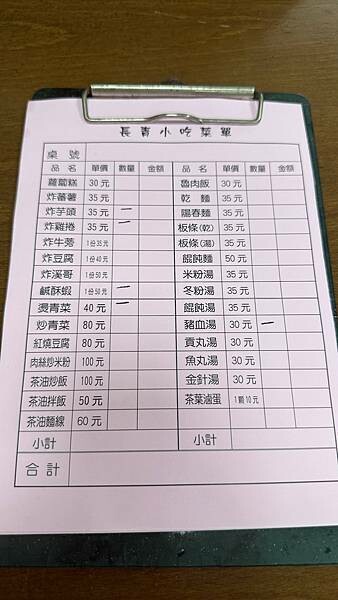 長青小吃菜單
桌號
品名 單價 數量 金額 品名 單價 數量 金額
蘿蔔糕 30元 魯肉飯 30元
炸蕃薯 35元 乾麵 35元
炸芋頭 35元 一 陽春麵 35元
炸雞捲 35元 一 板條(乾) 35元
炸牛蒡 1份35元 板條(湯) 35元
炸豆腐 1份40元 餛飩麵 50元
炸溪哥 1份50元 米粉湯 35元
鹹酥蝦 1份50元 一 冬粉湯 35元
燙青菜 40元 一 餛飩湯 35元
炒青菜 80元 豬血湯 30元 一
紅燒豆腐 80元 貢丸湯 30元
肉絲炒米粉 100元 魚丸湯 30元
茶油炒飯 100元 金針湯 30元
茶油拌飯 50元 茶葉滷蛋 1顆10元
茶油麵線 60元
小計 小計
合計